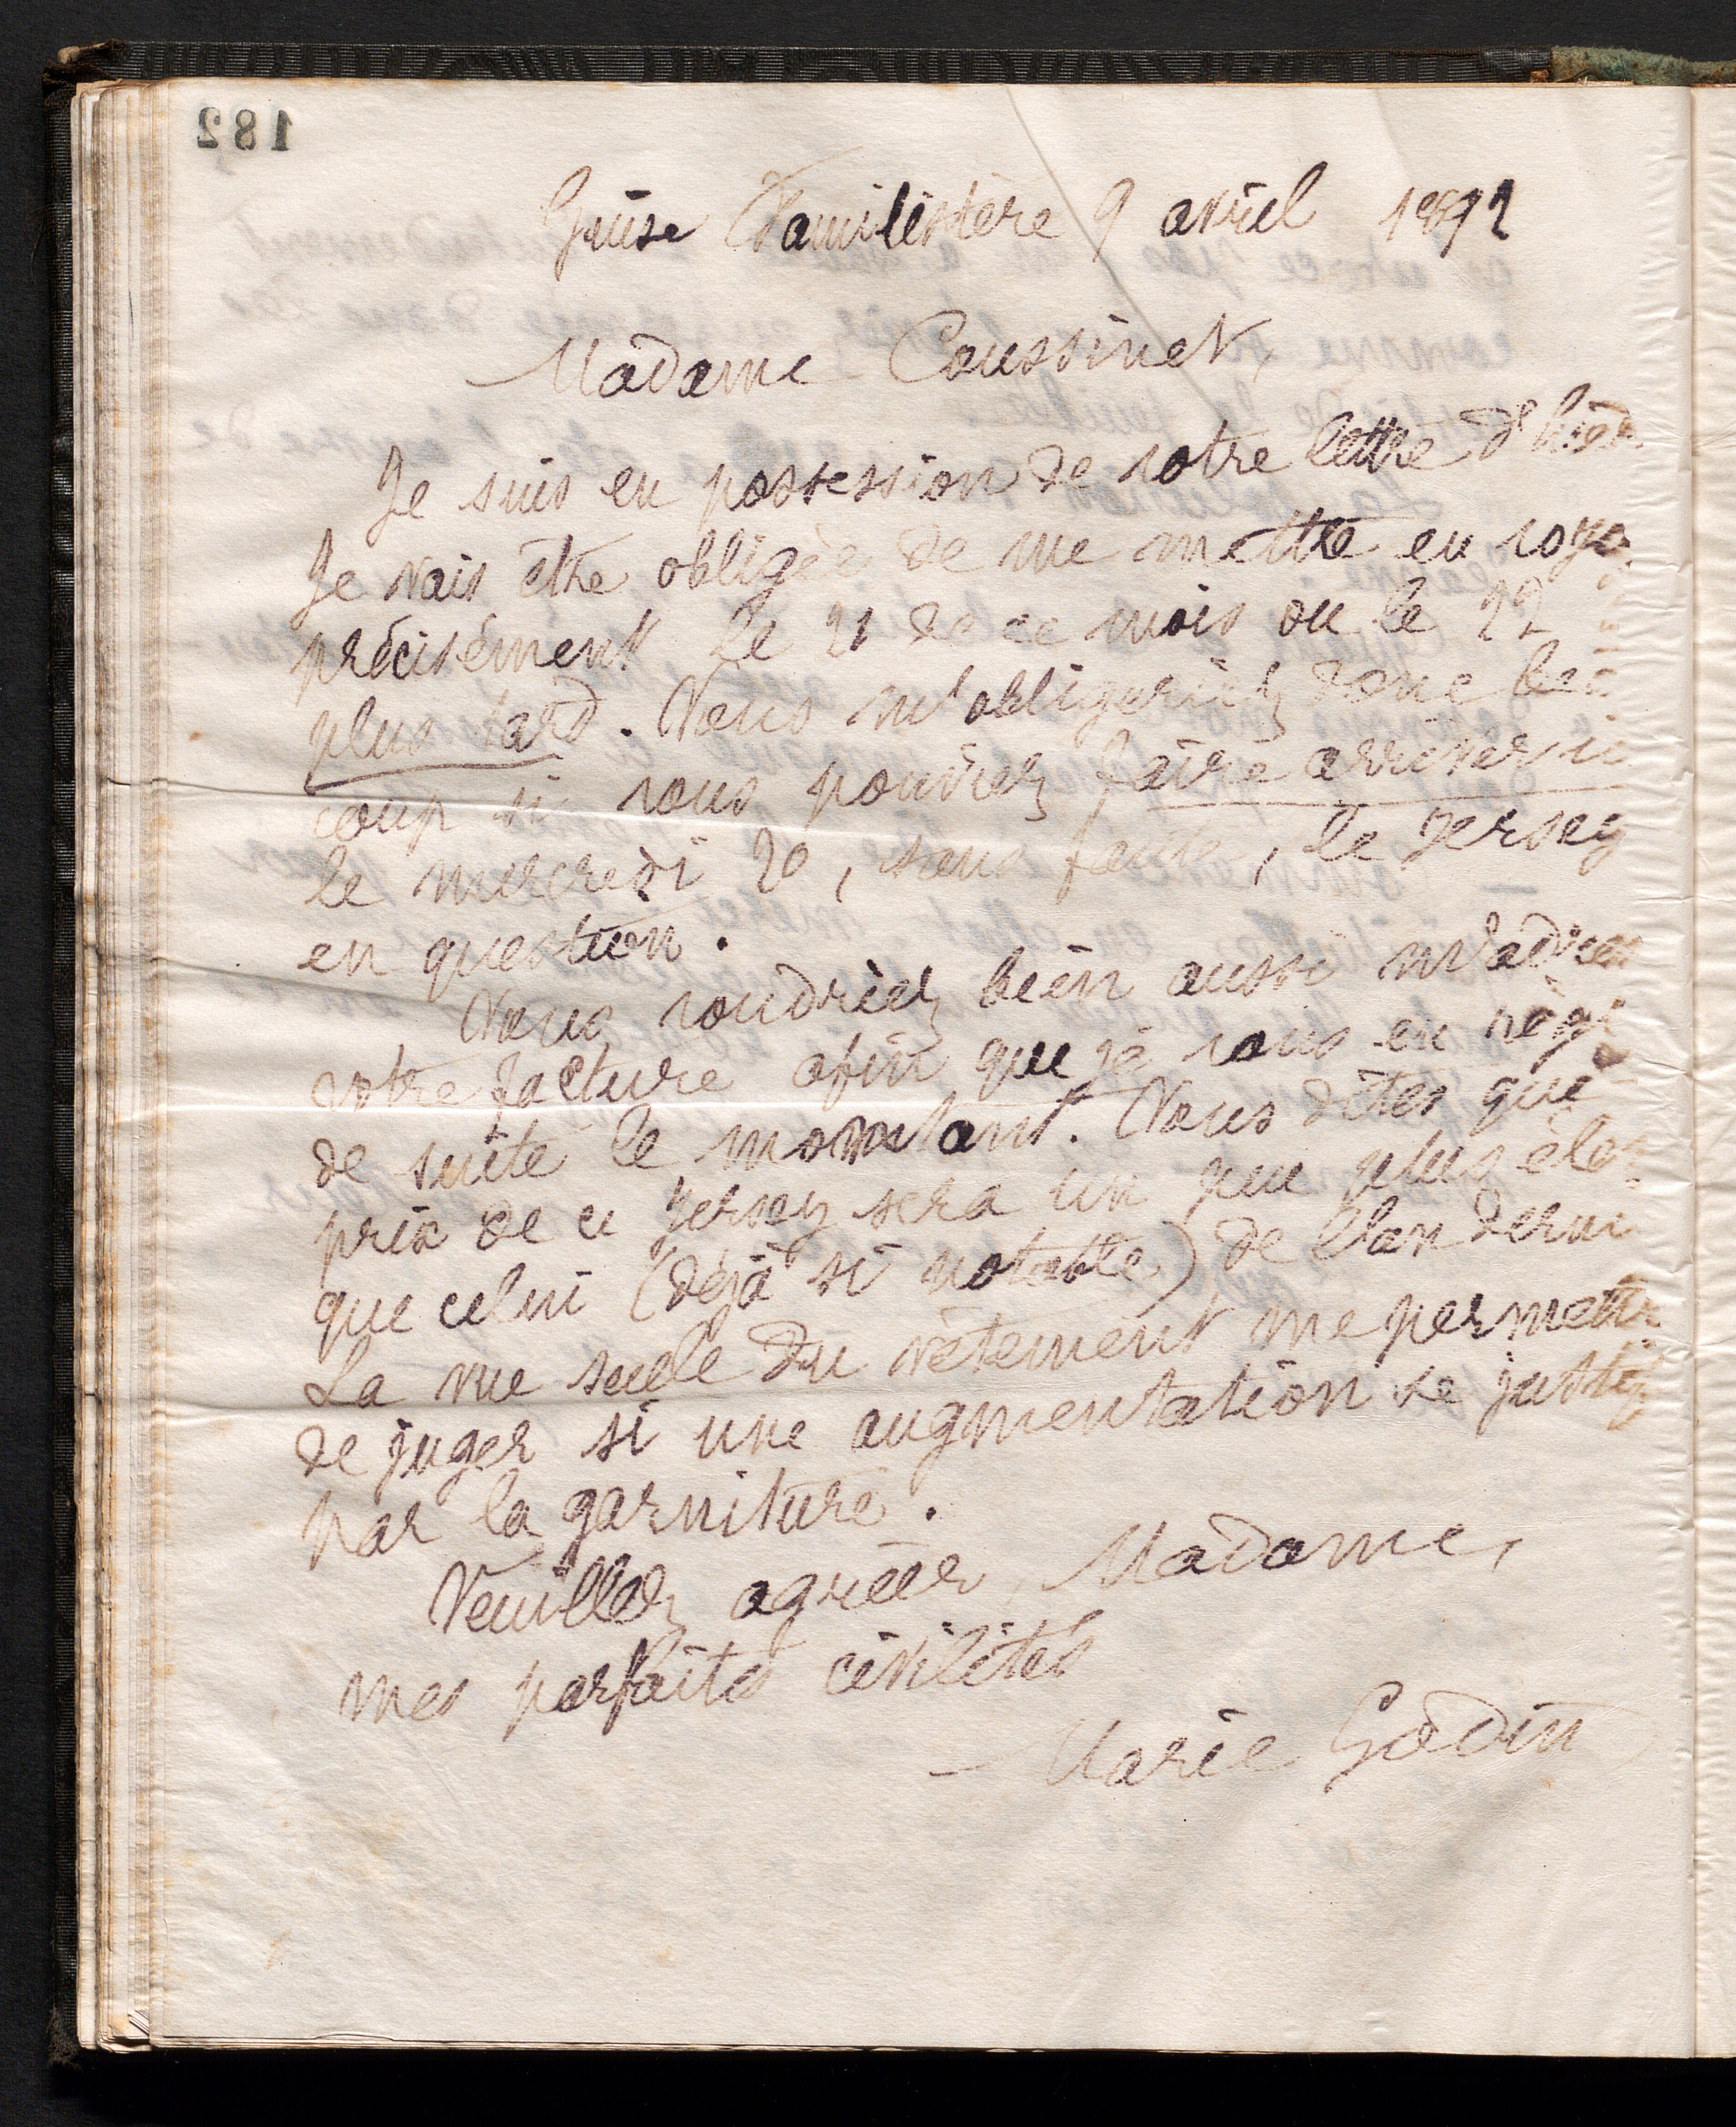 182
Guise Familistère 9 avril 1892
Madame Coussinet,
Je suis en possession de votre lettre d'hier
Je vais être obligée de me mettre en voya
précisément le 21 de ce mois ou le 22
plus tard. Vous m'obligeriez donc beau
coup si vous pouviez faire arriver ici
le mercredi 20, sans faute, le Jersey
en question.
Vous voudriez bien aussi m'adres
votre facture afin que je vous en règ
de suite le montant. Vous dites que
prix de ce Jersey sera un peu plus élev
que celui (déjà si notable) de l'an derni
La vue seule du vêtement me permettr
de juger si une augmentation se justif
par la garniture.
Veuillez agréer, Madame,
mes parfaites civilités
Marie Godin